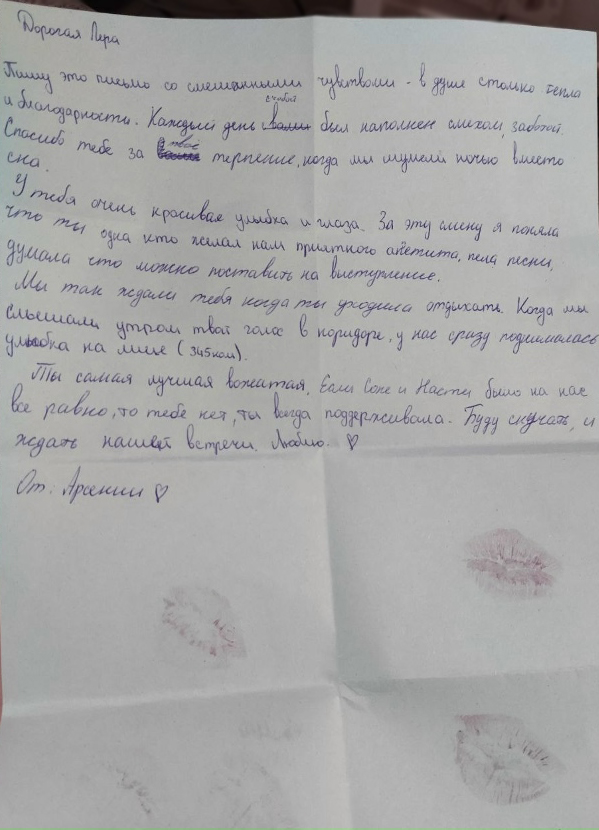 Дорогая Лера
Пишу это письмо со смешанными чувствами - в душе столько тепла
и благодарности. Каждый день с тобой был наполнен смехом, заботой.
Спасибо тебе за твоё терпение, когда мы шумели ночью вместо
сна.
У тебя очень красивая улыбка и глаза. За эту смену я поняла
что ты одна кто желал нам приятного апетита, пела песни,
думала что можно поставить на выступление.
Мы так ждали тебя когда ты уходила отдыхать. Когда мы
слышали утром твой голос в коридоре, у нас сразу поднималась
улыбка на лице (345 ком).
Ты самая лучшая вожатая. Если Соне и Насти было на нас
все равно, то тебе нет, ты всегда поддерживала. Буду скучать, и
ждать нашей встречи. Люблю. ♡
От: Арсении ♡